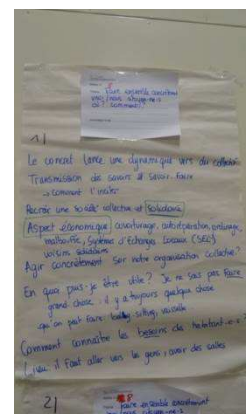 faire ensemble concrètement
vous/nous citoyen-ne-s
où? comment?
1)
Le concret lance une dynamique vers du collectif
Transmission des savoirs et savoir faire
→ comment l'inciter
Recréer une société collective et solidaire
Aspect économique covoiturage, autoréparation,
Systèmes d'échanges locaux (SEL)
voisins solidaires
Agir concrètement sur notre organisation collective?
En quoi puis-je être utile? Je ne sais pas faire
grand chose: il y a toujours quelque chose
qu'on peut faire: baby sitting, vaisselle
Comment connaître les besoins des habitant-e-s?
Lieu: il faut aller vers les gens, avoir des salles
2)
faire ensemble concrètement